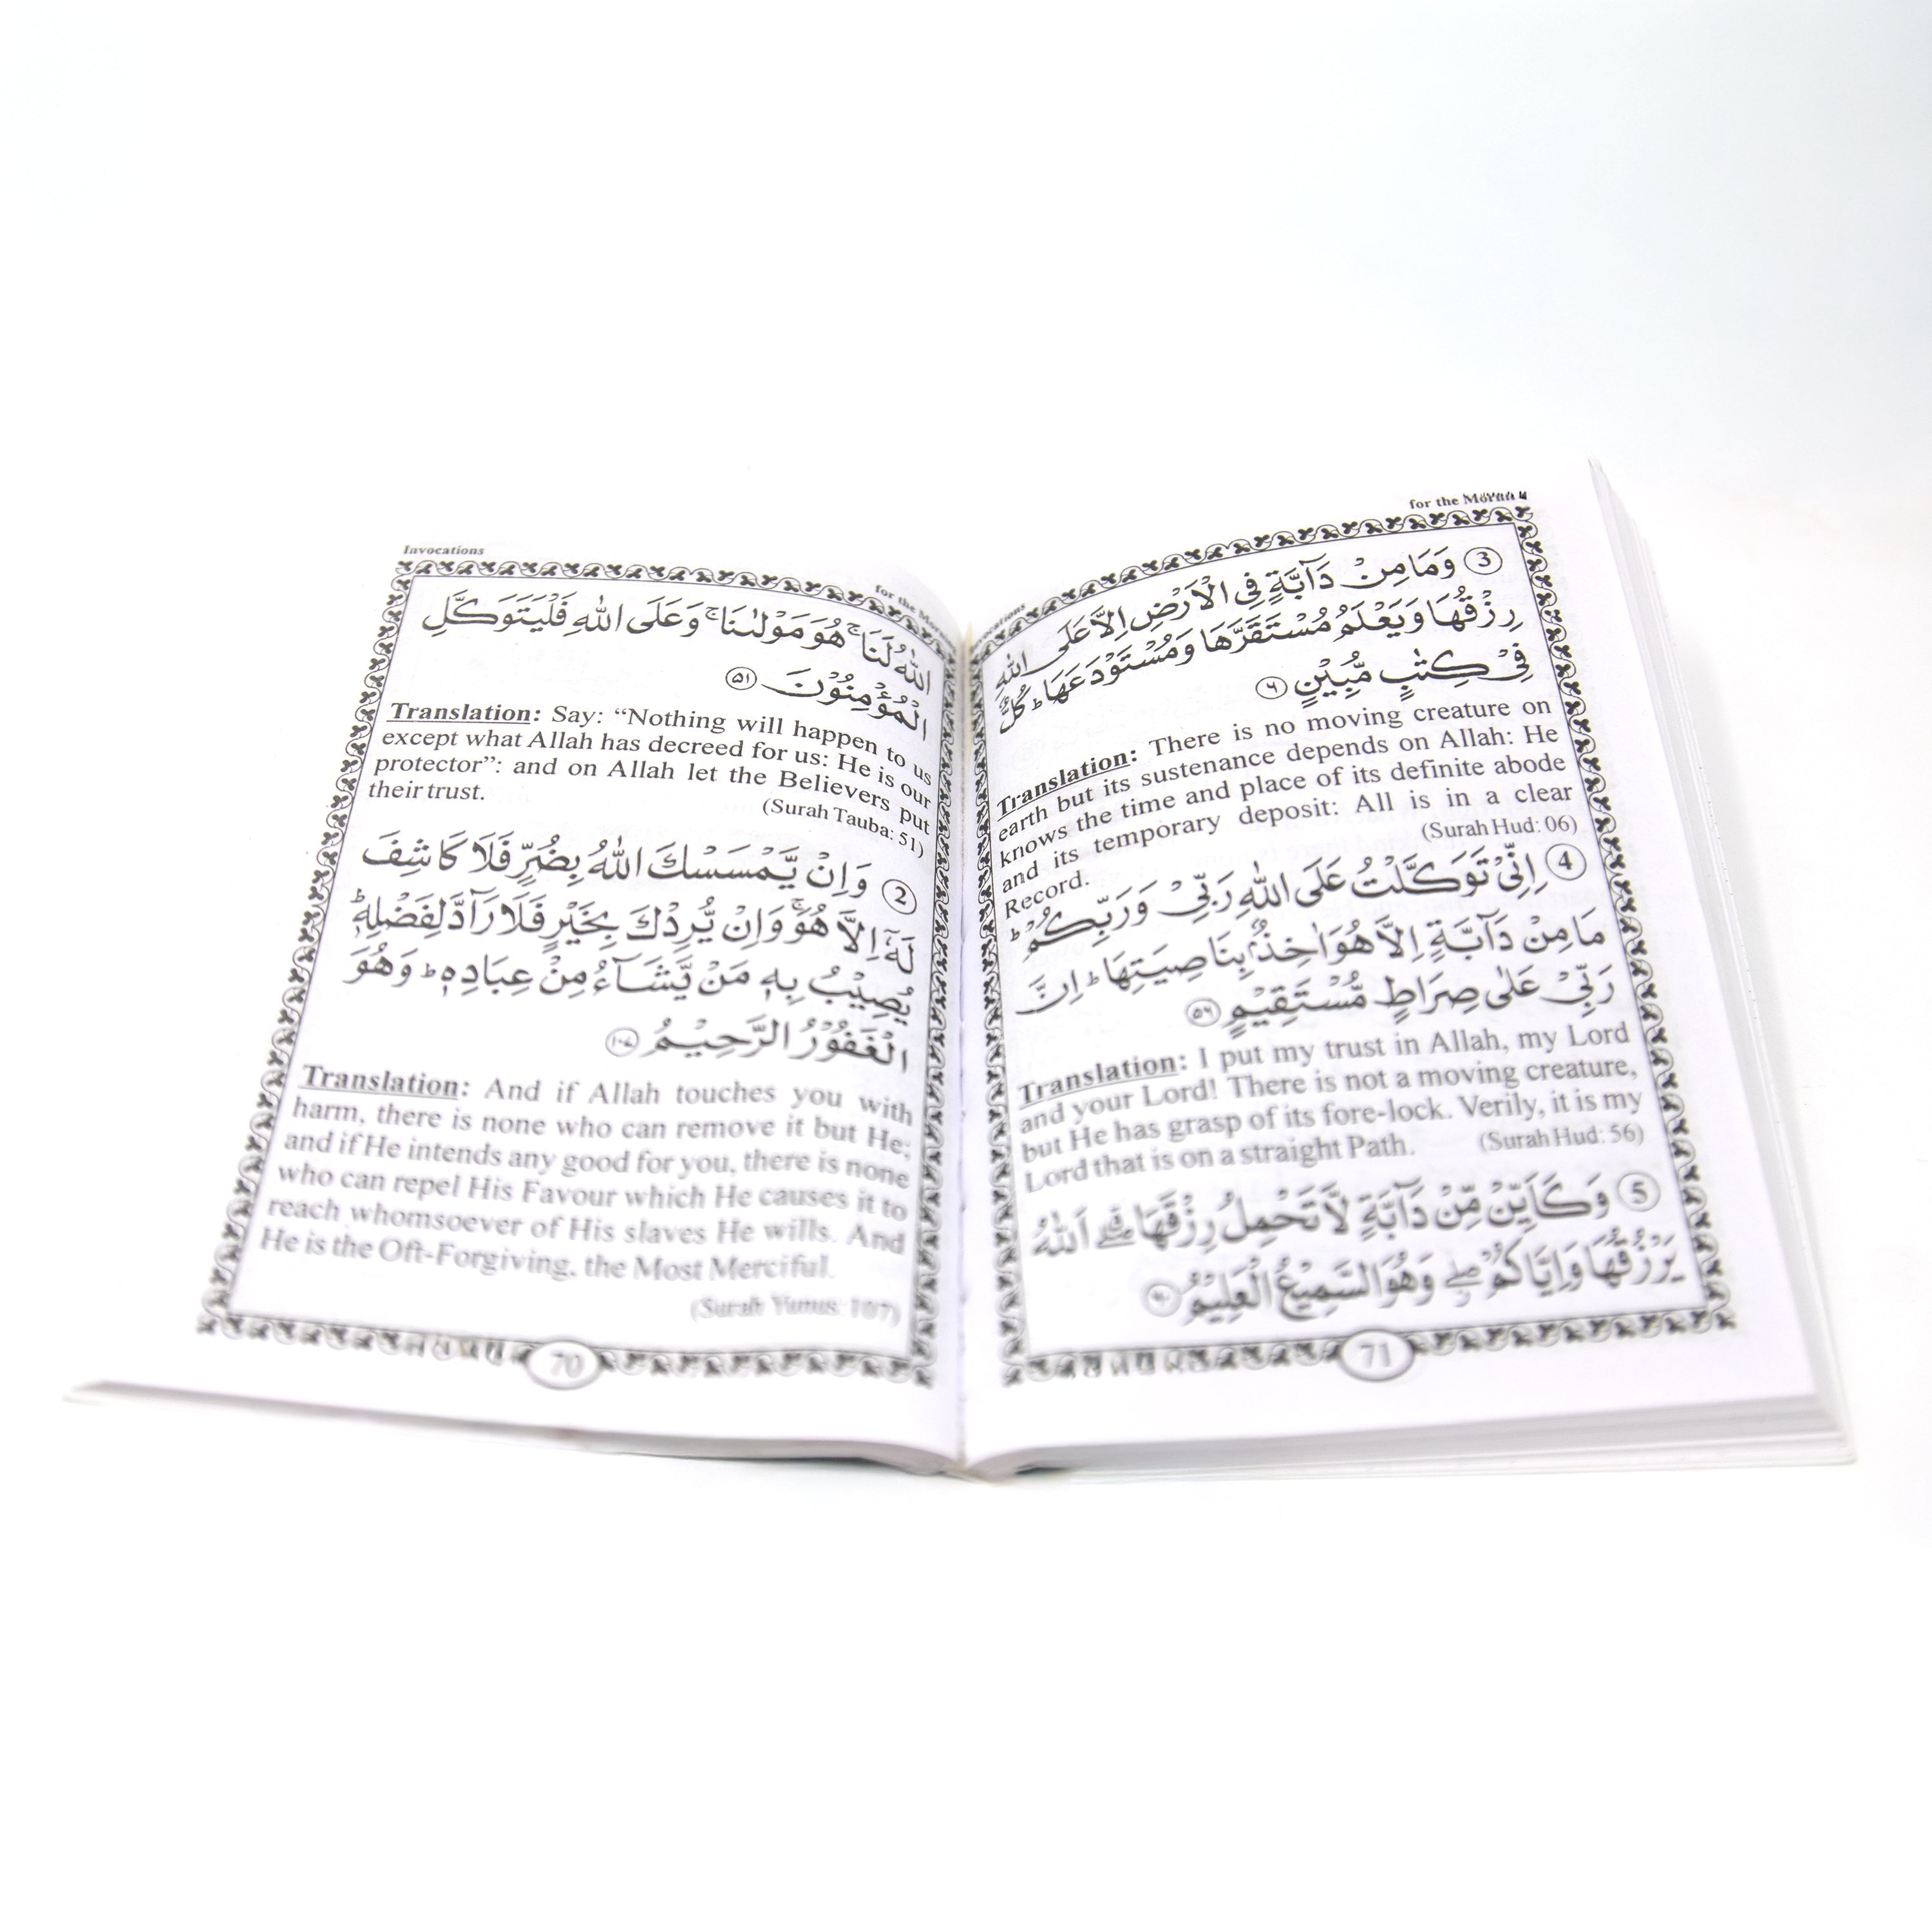 Invocations
for the
اللّٰهُ لَنَا ۚ هُوَ مَوْلٰىنَا ۚ وَعَلَى اللّٰهِ فَلْيَتَوَكَّلِ
الْمُؤْمِنُوْنَ ۝۵۱
Translation: Say: “Nothing will happen to us
except what Allah has decreed for us: He is our
protector”: and on Allah let the Believers put
their trust.
(Surah Tauba: 51)
2 وَاِنْ يَّمْسَسْكَ اللّٰهُ بِضُرٍّ فَلَا كَاشِفَ
لَهٗٓ اِلَّا هُوَ ۚ وَاِنْ يُّرِدْكَ بِخَيْرٍ فَلَا رَآدَّ لِفَضْلِهٖ ؕ
يُصِيْبُ بِهٖ مَنْ يَّشَآءُ مِنْ عِبَادِهٖ ؕ وَهُوَ
الْغَفُوْرُ الرَّحِيْمُ ۝۱۰۷
Translation: And if Allah touches you with
harm, there is none who can remove it but He;
and if He intends any good for you, there is none
who can repel His Favour which He causes it to
reach whomsoever of His slaves He wills. And
He is the Oft-Forgiving, the Most Merciful.
(Surah Yunus: 107)
70
for the
3 وَمَا مِنْ دَآبَّةٍ فِى الْاَرْضِ اِلَّا عَلَى اللّٰهِ
رِزْقُهَا وَيَعْلَمُ مُسْتَقَرَّهَا وَمُسْتَوْدَعَهَا ؕ كُلٌّ
فِىْ كِتٰبٍ مُّبِيْنٍ ۝۶
Translation: There is no moving creature on
earth but its sustenance depends on Allah: He
knows the time and place of its definite abode
and its temporary deposit: All is in a clear
Record.
(Surah Hud: 06)
4 اِنِّىْ تَوَكَّلْتُ عَلَى اللّٰهِ رَبِّىْ وَرَبِّكُمْ ؕ
مَا مِنْ دَآبَّةٍ اِلَّا هُوَ اٰخِذٌۢ بِنَاصِيَتِهَا ؕ اِنَّ
رَبِّىْ عَلٰى صِرَاطٍ مُّسْتَقِيْمٍ ۝۵۶
Translation: I put my trust in Allah, my Lord
and your Lord! There is not a moving creature,
but He has grasp of its fore-lock. Verily, it is my
Lord that is on a straight Path. (Surah Hud: 56)
5 وَكَاَيِّنْ مِّنْ دَآبَّةٍ لَّا تَحْمِلُ رِزْقَهَا ۖ اَللّٰهُ
يَرْزُقُهَا وَاِيَّاكُمْ ۖ وَهُوَ السَّمِيْعُ الْعَلِيْمُ ۝۶۰
71